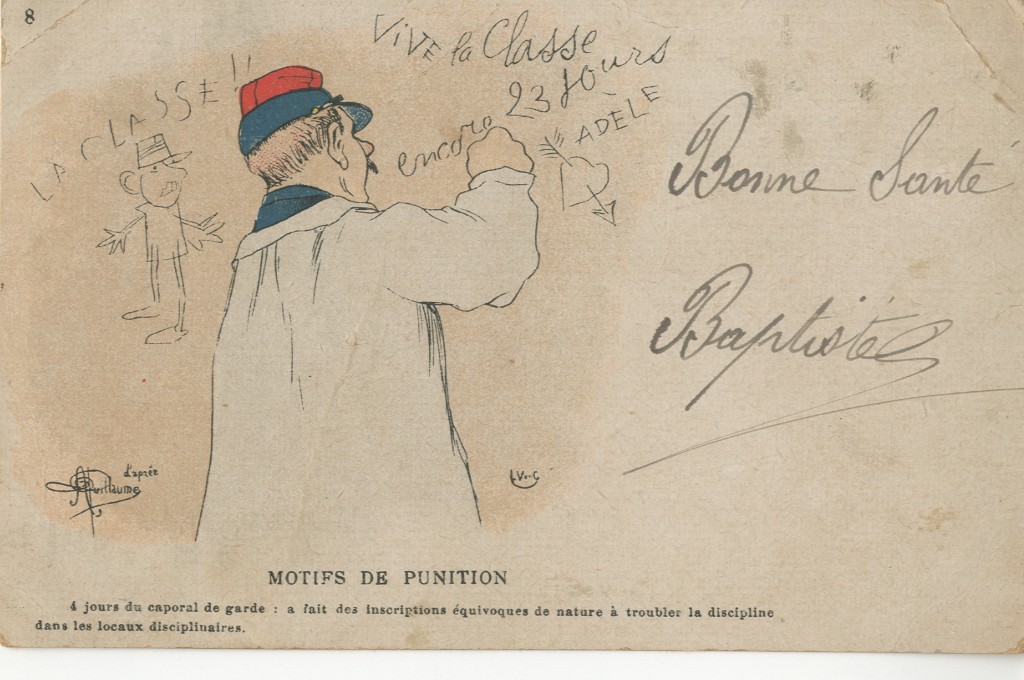 8
LA CLASSE !!
VIVE la Classe
encore 23 JOURS
ADÈLE
Bonne Santé
Baptiste
d'après
A Guillaume
MOTIFS DE PUNITION
4 jours du caporal de garde : a fait des inscriptions équivoques de nature à troubler la discipline
dans les locaux disciplinaires.